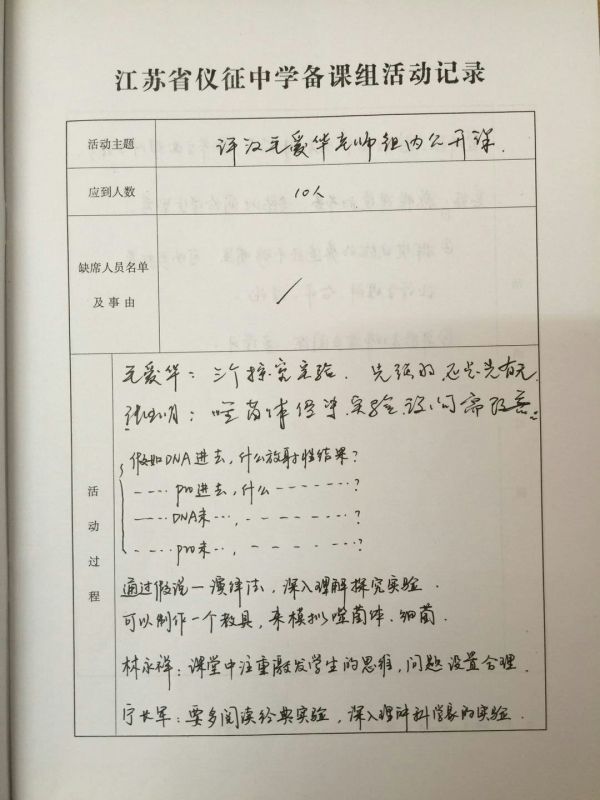 江苏省仪征中学备课组活动记录
活动主题 评议王爱华老师组内公开课.
应到人数 10人
缺席人员名单
及事由 /
活动过程
王爱华：三个探究实验.
明：噬菌体侵染实验设问需改善.
假如DNA进去,什么放射性结果?
---- pro进去,什么-------?
---- DNA未…,-------?
---- pro未…,-------?
通过假说一演绎法,深入理解探究实验.
可以制作一个教具,来模拟噬菌体.细菌.
林永祥:课堂中注重激发学生的思维,问题设置合理.
宁长军:要多阅读经典实验,深入理解科学家的实验.